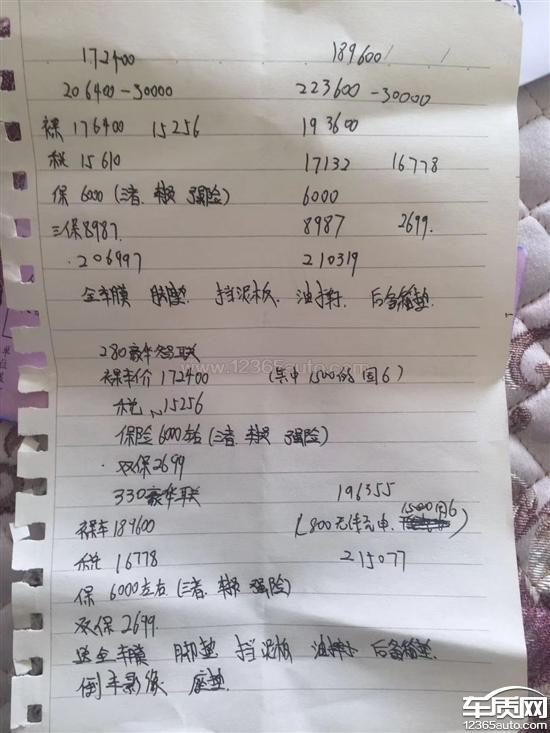 172400 189600
206400-30000 223600-30000
裸 176400 15256 193600
税 15610 17132 16778
保 6000 (三者、车损 强险) 6000
三保8987. 8987 2699.
206997 210319
全车膜 脚垫 挡泥板、油排 后备箱垫
280豪华智联
www.12365auto.com
裸车价 172400 (其中1500 国6)
税 15256
保险 6000左右 (三者、车损 强险)
双保 2699
330豪华联 196355
裸车 189600 (800元 1500国6)
税 16778 215077
保 6000左右 (三者、车损 强险)
双保 2699.
送全车膜 脚垫 挡泥板 油排 后备箱垫
倒车影像 座垫.
车质网
12365auto.com